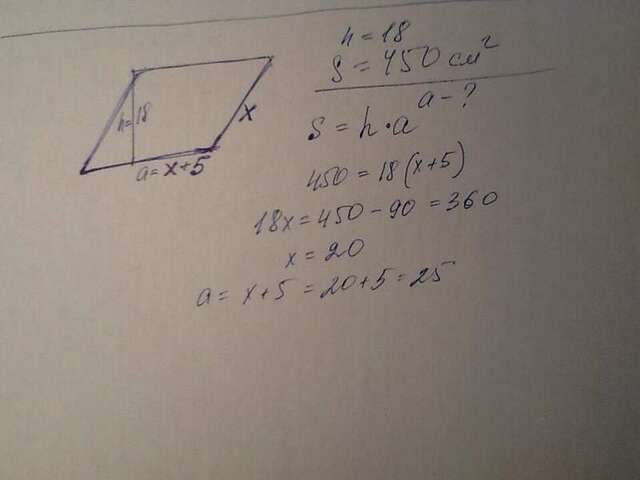 h=18
S=450 см²
a-?
h=18
x
a=x+5
S=h·a
450=18(x+5)
18x=450-90=360
x=20
a=x+5=20+5=25